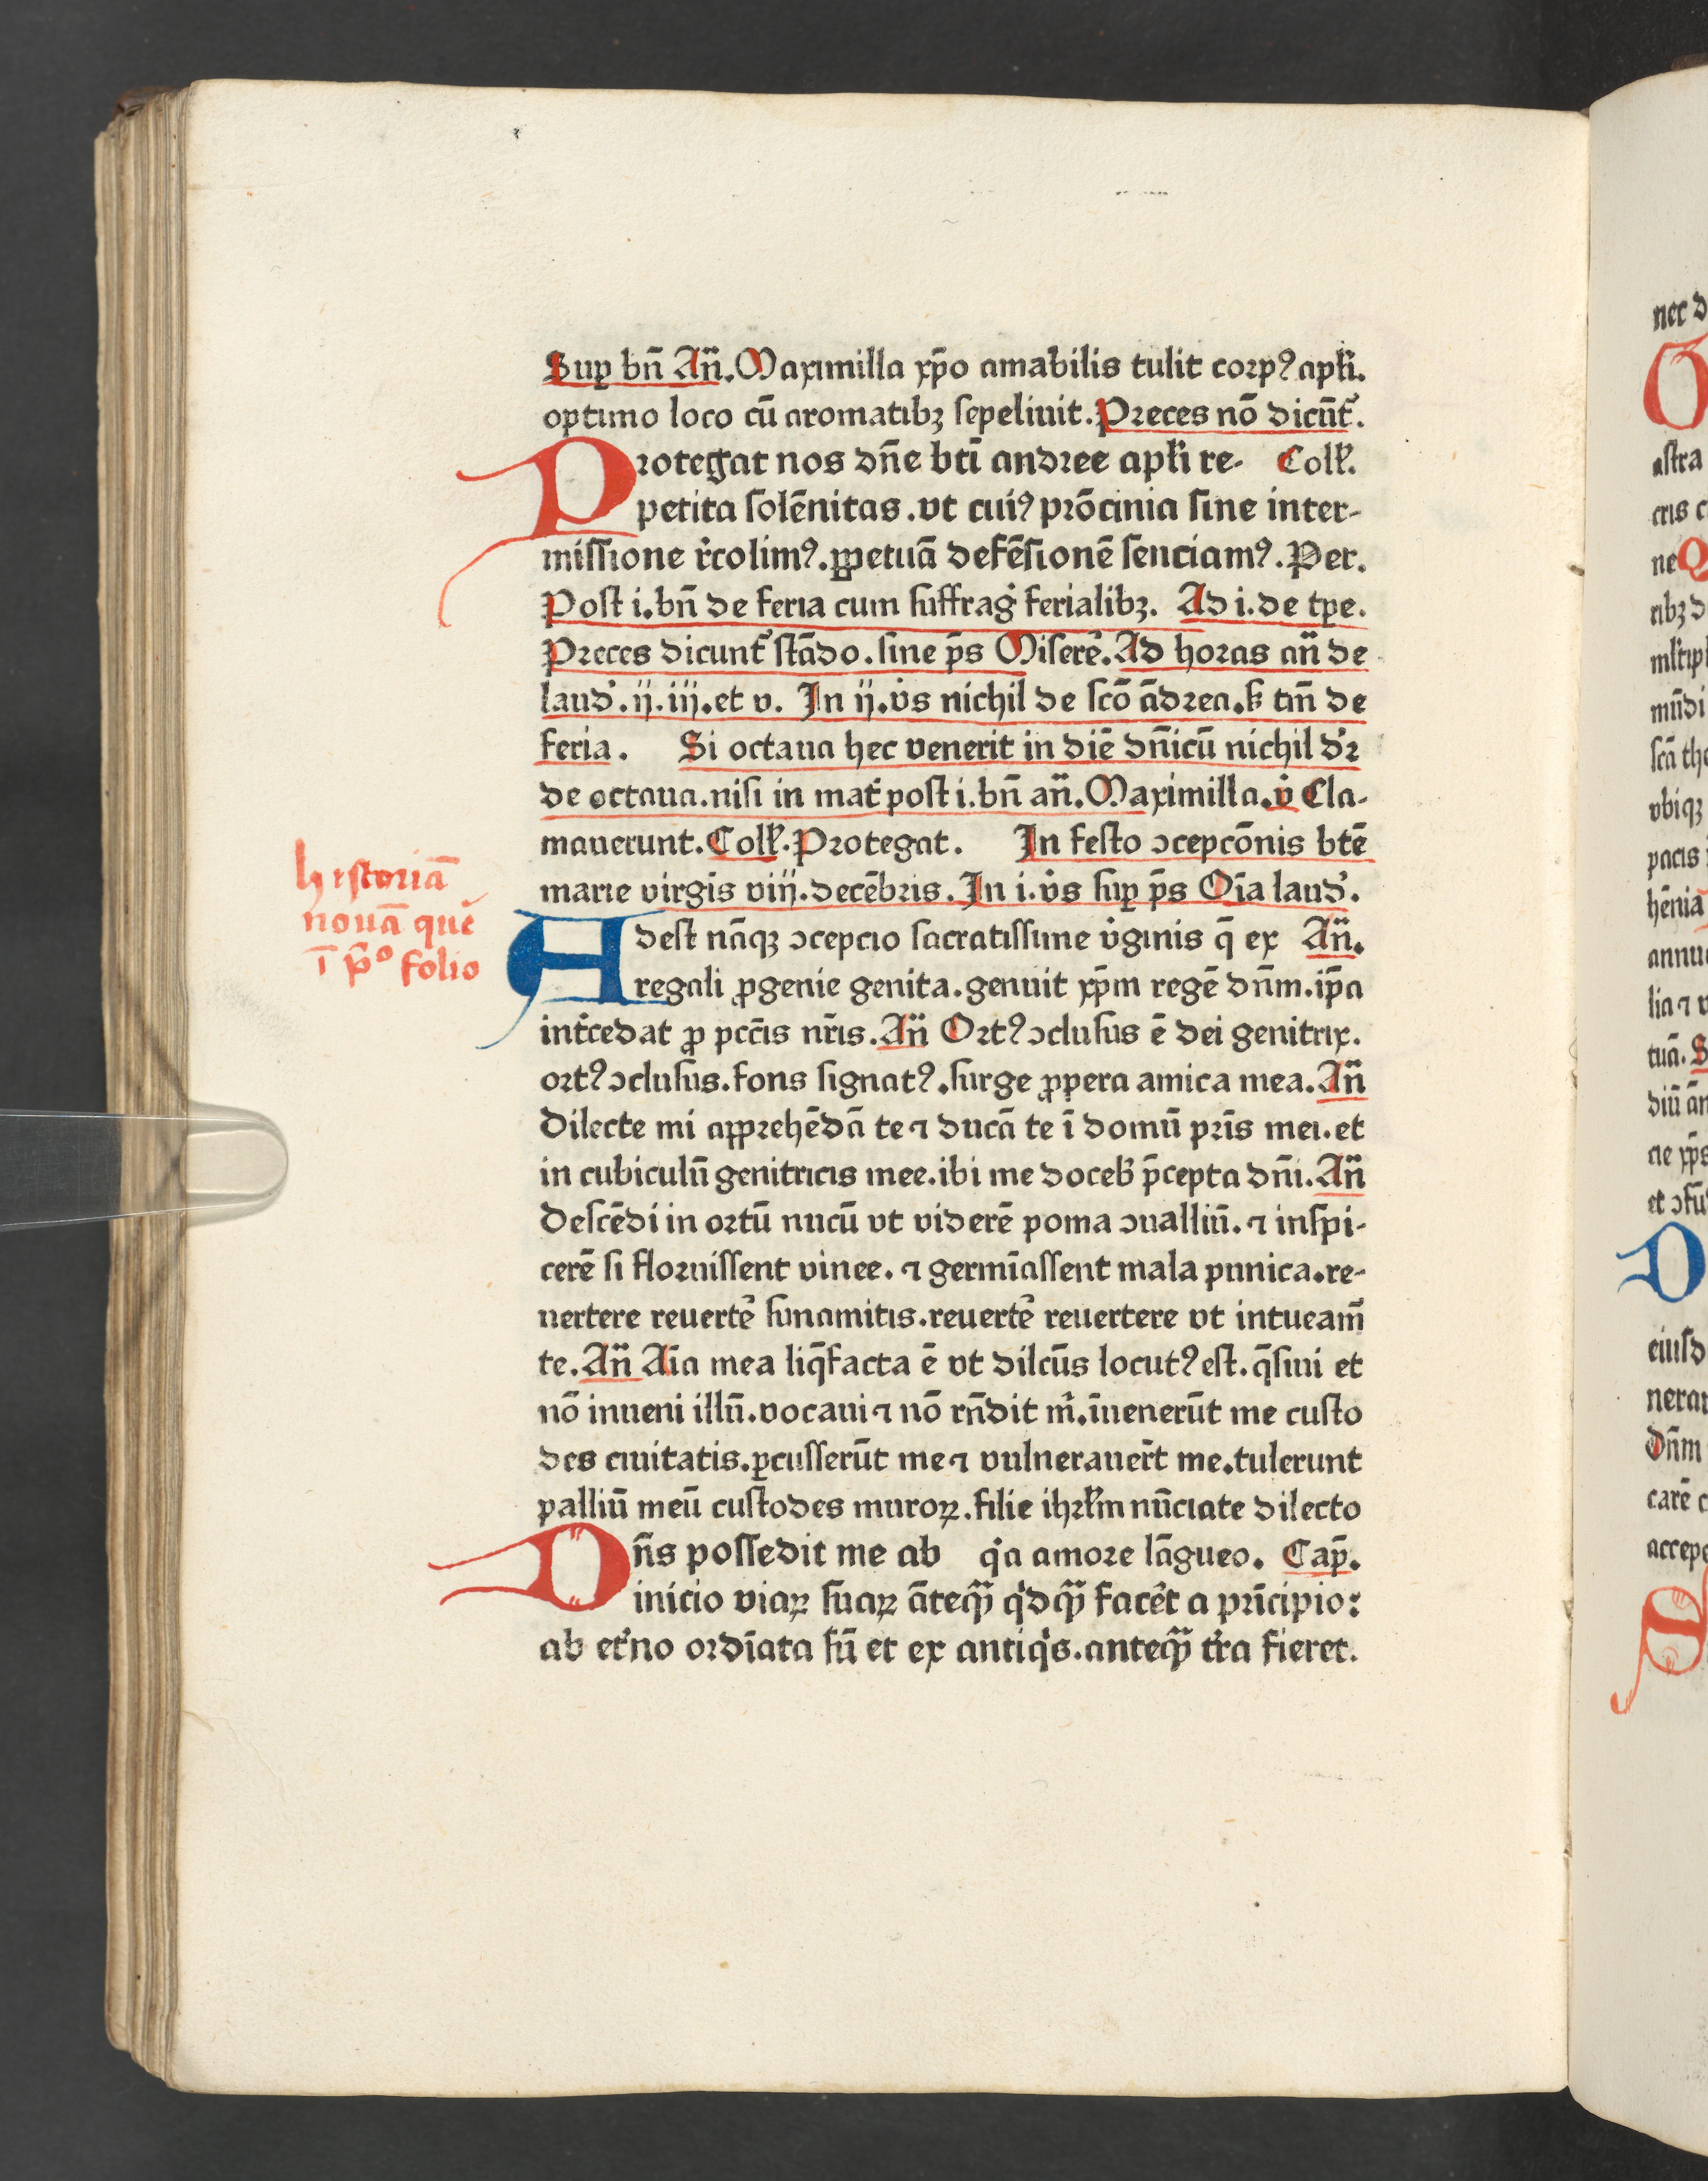 Sup bn̄ An̄. Maximilla xp̄o amabilis tulit corpꝰ apl̄i.
optimo loco cū aromatibꝫ sepeliuit. Preces nō dicūt᷑.
Protegat nos dn̄e bt̄i andree apl̄i re- Coll̄.
petita solēnitas. vt cuiꝰ prōcinia sine inter-
missione r̄colimꝰ. ꝑpetuā defēsionē senciamꝰ. Per.
Post i. bn̄ de feria cum suffrag̓ ferialibꝫ. Ad i. de tꝑe.
Preces dicunt᷑ stādo. sine p̄s Miserē. Ad horas an̄ de
laud̓. ij. iij. et v. In ij. v̓s nichil de scō ādrea. sꝫ tm̄ de
feria. Si octaua hec venerit in diē dn̄icū nichil d̓r
de octaua. nisi in mat̓ post i. bn̄ an̄. Maximilla. v̓ Cla-
mauerunt. Coll̄. Protegat. In festo ↄcepcōnis btē
marie virgis viij. decēbris. In i. v̓s suꝑ p̄s Oīa laud̓.
historiā
nouā que
ī p̄ᵒ folio
Adest nāqꝫ ↄcepcio sacratissime v̓ginis q̄ ex An̄.
regali ꝓgenie genita. genuit xp̄m regē dn̄m. ip̄a
int̓cedat ꝓ pcc̄is nr̄is. An̄ Ortꝰ ↄclusus ē dei genitrix.
ortꝰ ↄclusus. fons signatꝰ. surge ꝓpera amica mea. An̄
Dilecte mi apprehēdā te ⁊ ducā te ī domū pr̄is mei. et
in cubiculū genitricis mee. ibi me doceb̓ p̄cepta dn̄i. An̄
Descēdi in ortū nucū vt viderē poma ↄualliū. ⁊ inspi-
cerē si floruissent vinee. ⁊ germīassent mala punica. re-
uertere reuertē sunamitis. reuertē reuertere vt intueam̄
te. An̄ Aīa mea liq̄facta ē vt dilcūs locutꝰ est. q̄siui et
nō inueni illū. vocaui ⁊ nō rn̄dit m̓. īuenerūt me custo
des ciuitatis. ꝑcusserūt me ⁊ vulnerauer̄t me. tulerunt
palliū meū custodes muroꝝ. filie ihrl̄m nūciate dilecto
Dn̄s possedit me ab q̓a amore lāgueo. Cap̄.
inicio viaꝝ suaꝝ āteq̄ꝫ q̓dq̄ꝫ facēt a prīcipio:
ab et̓no ordīata sū et ex antiq̓s. anteq̄ꝫ t̓ra fieret.